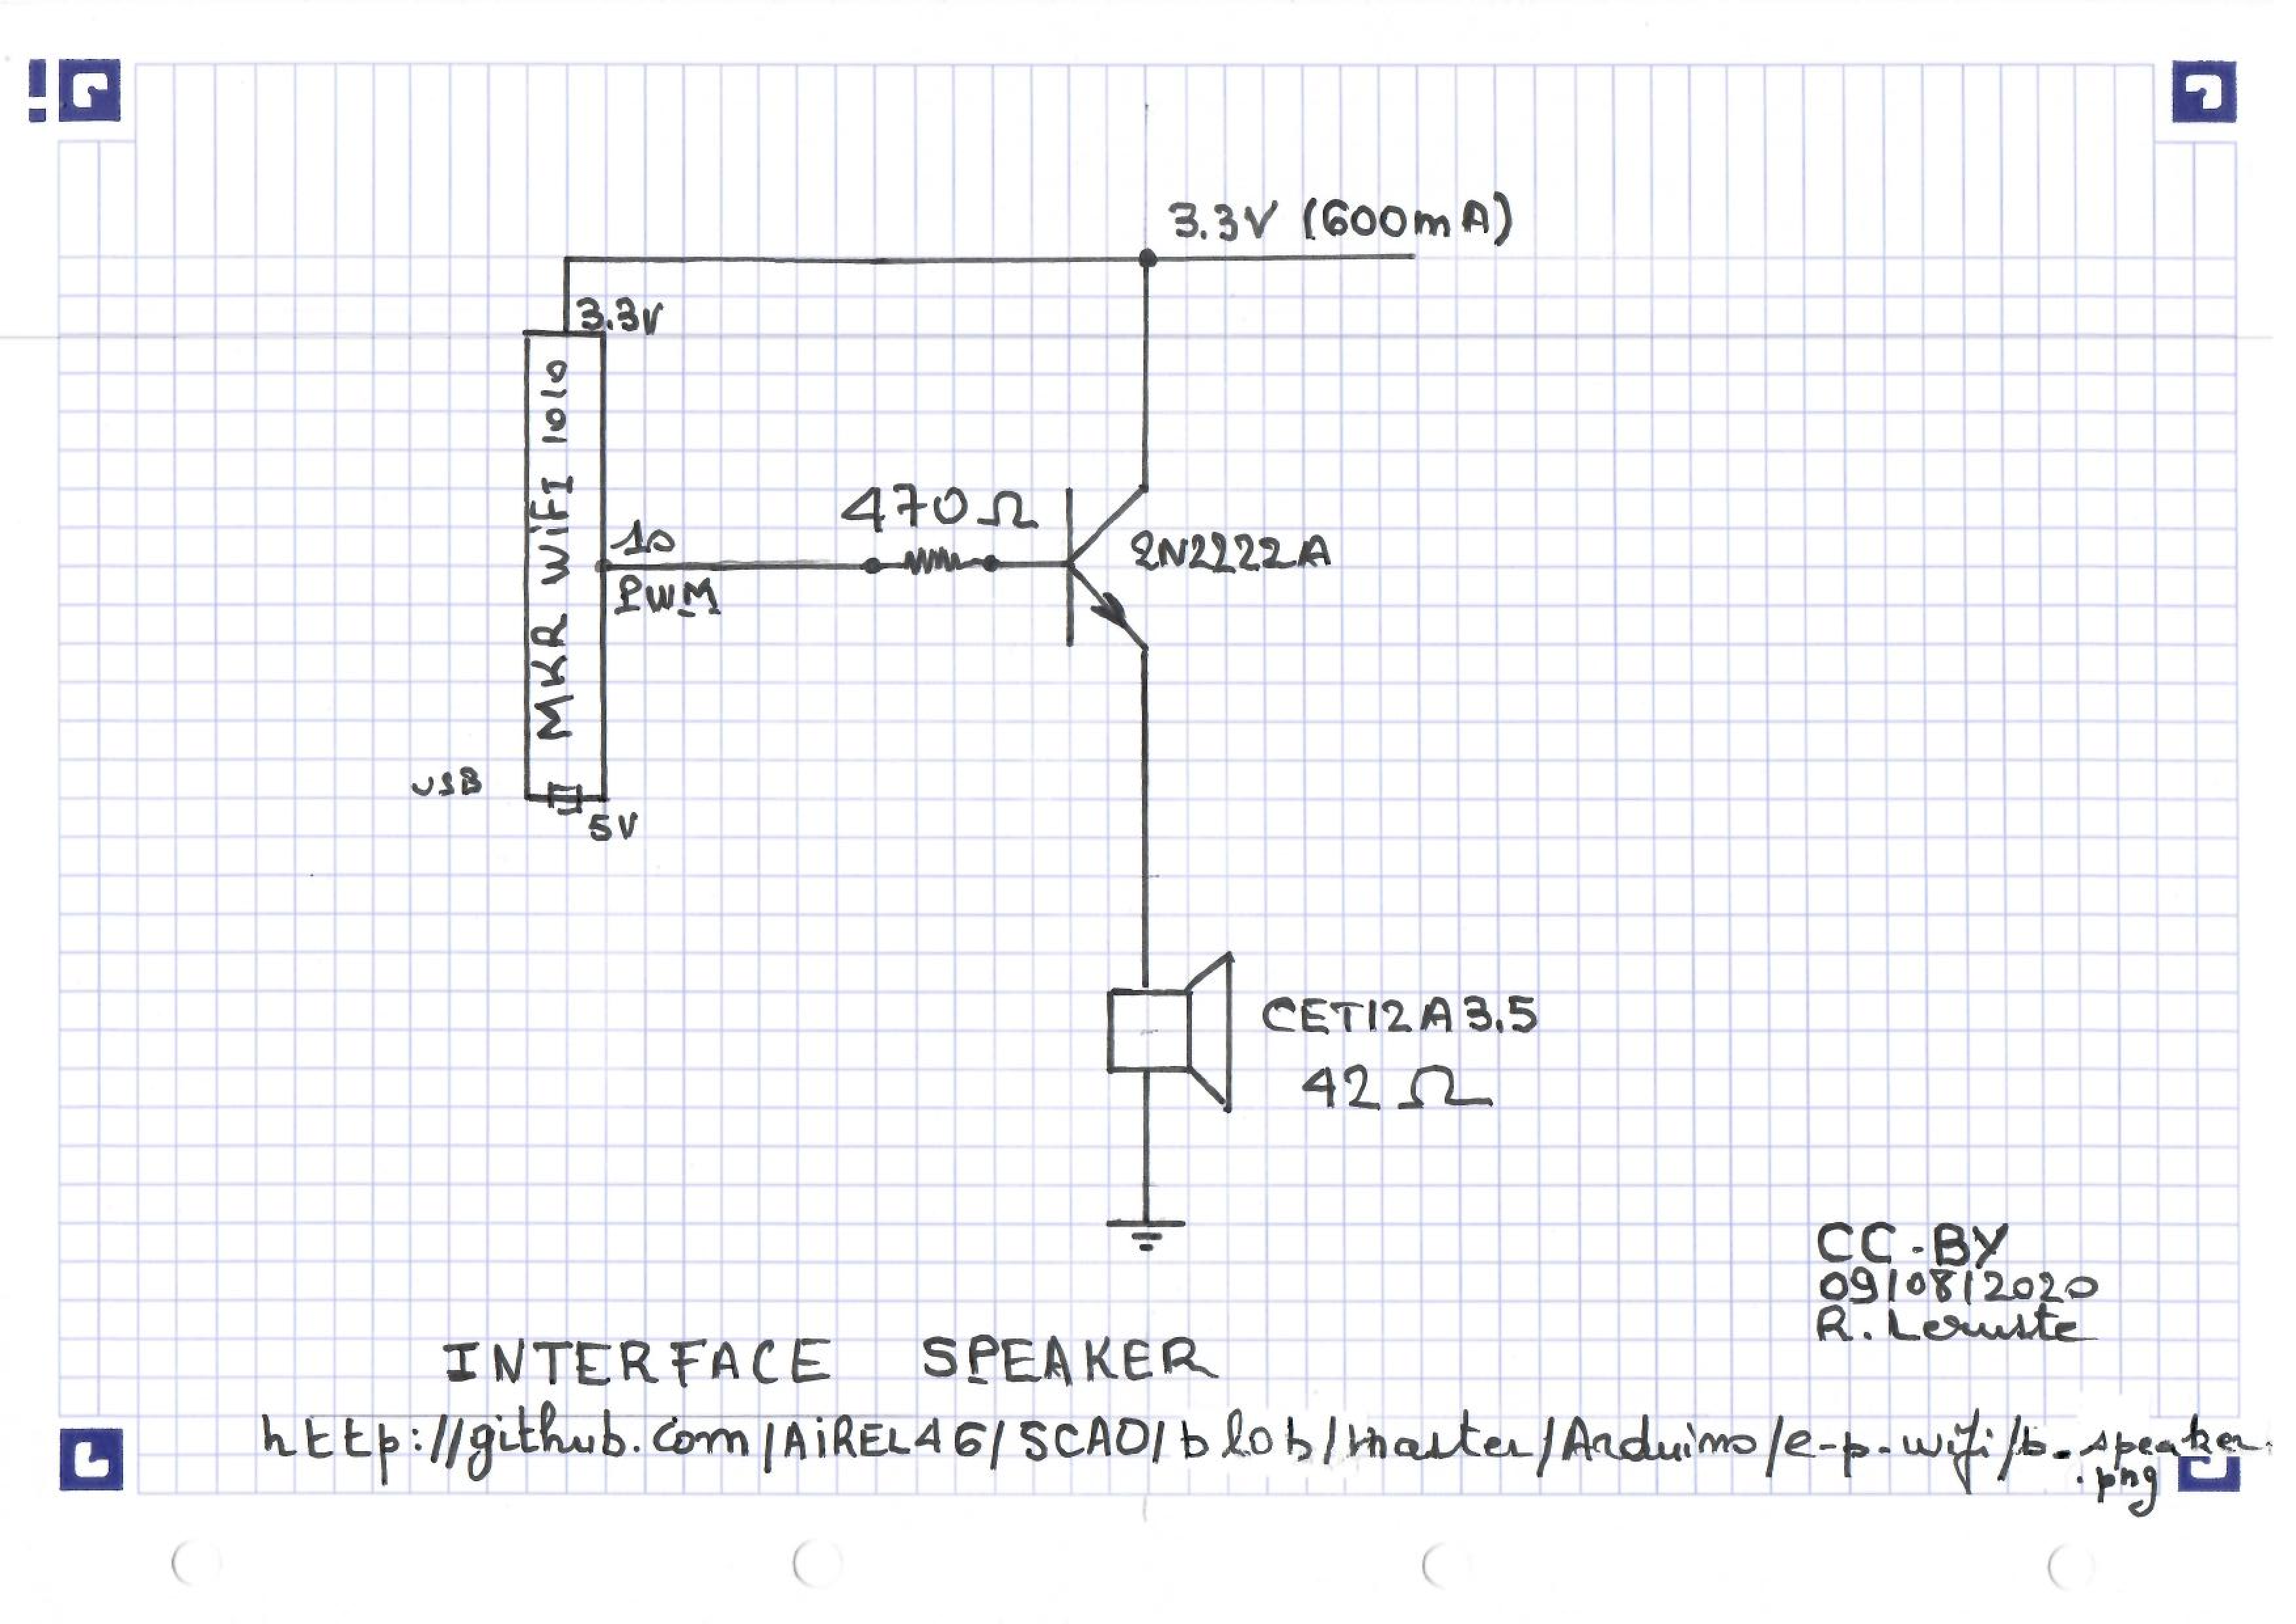 3.3V (600mA)
3.3V
MKR WiFi 1010
470Ω
10
PWM
2N2222A
USB
5V
CET12A3.5
42Ω
CC-BY
09/08/2020
R. Leruste
INTERFACE SPEAKER
http://github.com/AiREL46/SCAO/blob/master/Arduino/e-p-wifi/b_speaker.
.png